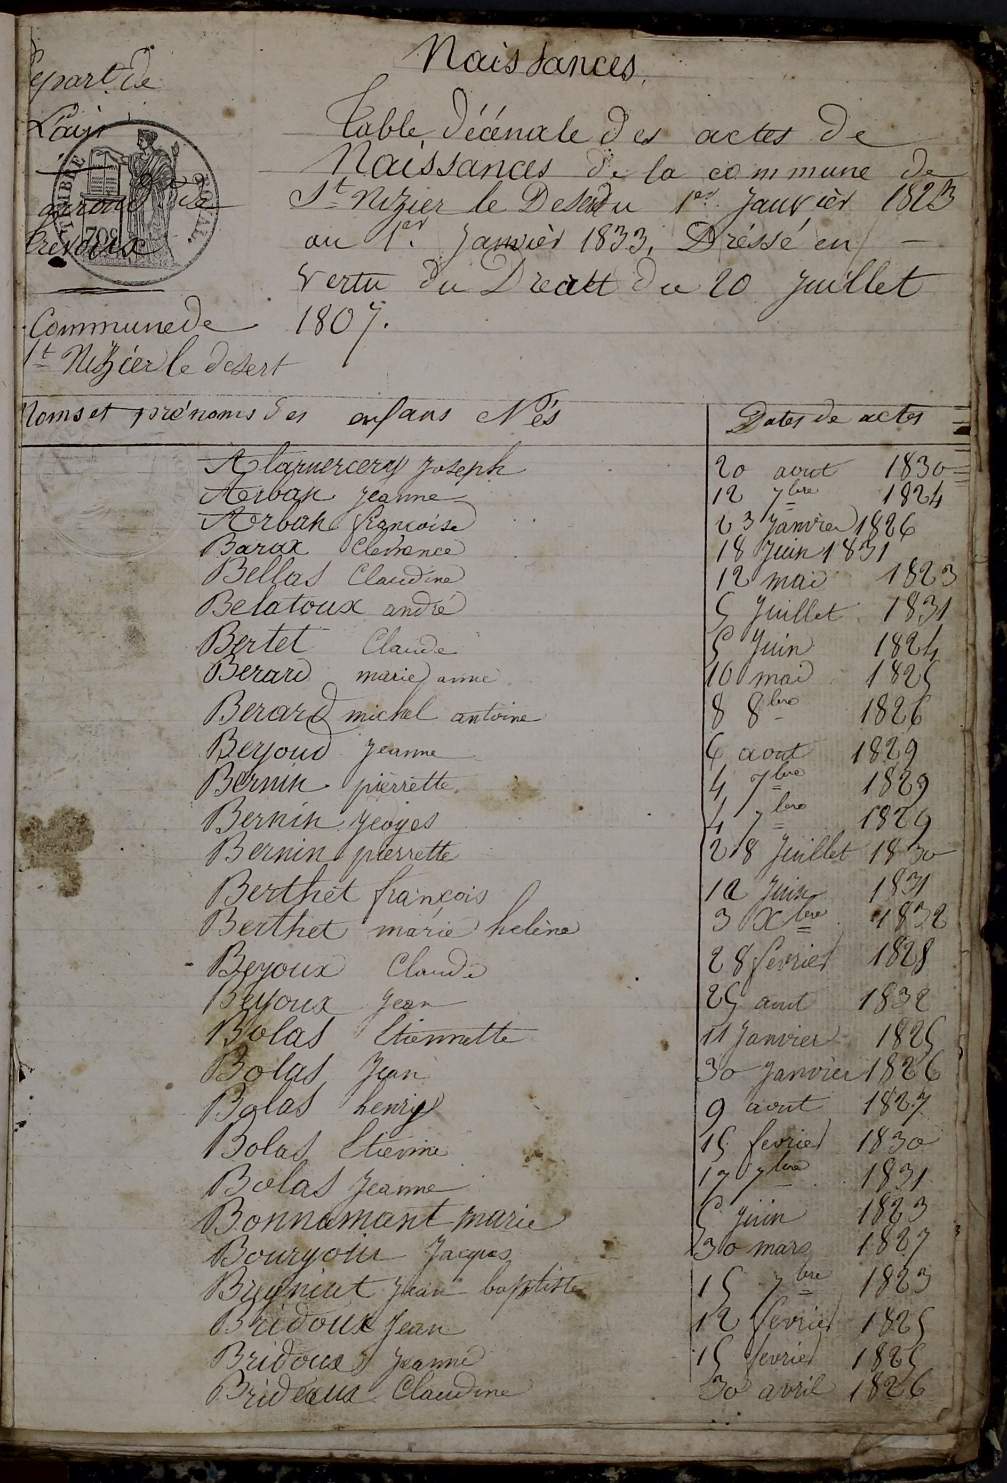 Naissances.
Départ. de
L'ain
TIMBRE ROYAL.
arrond. de
trevoux
Table décénale des actes de
Naissances de la commune de
St. Nizier le Desert du 1er. Janvièr 1823
au 1er. Janvièr 1833. Dréssé en
Vertu du Decrett du 20 Juillet
1807.
Commune de
St Nizier le desert
Noms et prénoms des enfans Nés
Dates de actes
Joseph 20 aout 1830
Arban Jeanne 12 7bre 1824
Arban françoise 23 Janvier 1826
Barax Clemence 18 Juin 1831
Bellas Claudine 12 mai 1823
Belatoux andré 5 Juillet 1831
Bertet Claude 5 Juin 1824
Berard marie anne 10 mai 1825
Berard michel antoine 8 8bre 1826
Beyoud Jeanne 6 aout 1829
Bernin pierrette 4 7bre 1829
Bernin 4 7bre 1829
Bernin pierrette 28 Juillet 1830
Berthet françois 12 Juin 1831
Berthet marie helène 3 Xbre 1832
Beyoux Claude 28 fevrier 1828
Beyoux Jean 25 aout 1832
Bolas Etiennette 11 Janvier 1825
Bolas Jean 30 Janvier 1826
Bolas henry 9 aout 1827
Bolas Etienne 15 fevrier 1830
Bolas Jeanne 17 7bre 1831
Bonnamant marie 5 juin 1823
Jacques 30 mars 1827
Jean baptiste 15 7bre 1823
Bridoux Jean 12 fevrier 1825
Bridoux Jeanne 15 fevrier 1825
Bridoux Claudine 30 avril 1826